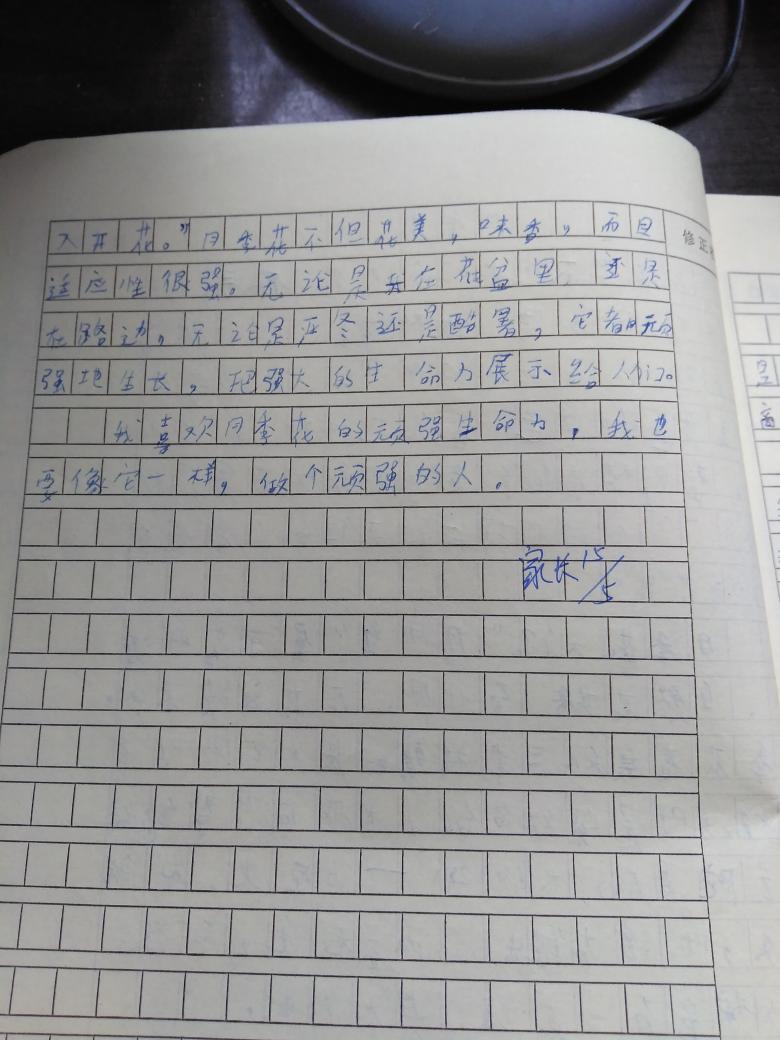 入开花。"月季花不但花美，味香，而且
适应性很强。无论是长在花盆里，还是
在路边，无论是严冬还是酷暑，它都顽
强地生长，把强大的生命力展示给人们。
我喜欢月季花的顽强生命力，我也
要像它一样，做个顽强的人.
家长15/5
修正